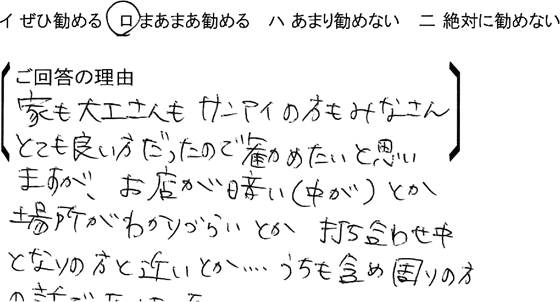 イ ぜひ勧める ロ まあまあ勧める ハ あまり勧めない 二 絶対に勧めない
ご回答の理由
家も大工さんも サンアイの方もみなさん
とても良い方だったので勧かめたいと思い
ますが、お店が暗い(中が)とか
場所がわかりづらいとか 打ち合わせ中
となりの方と近いとか‥‥うちも含め周りの方